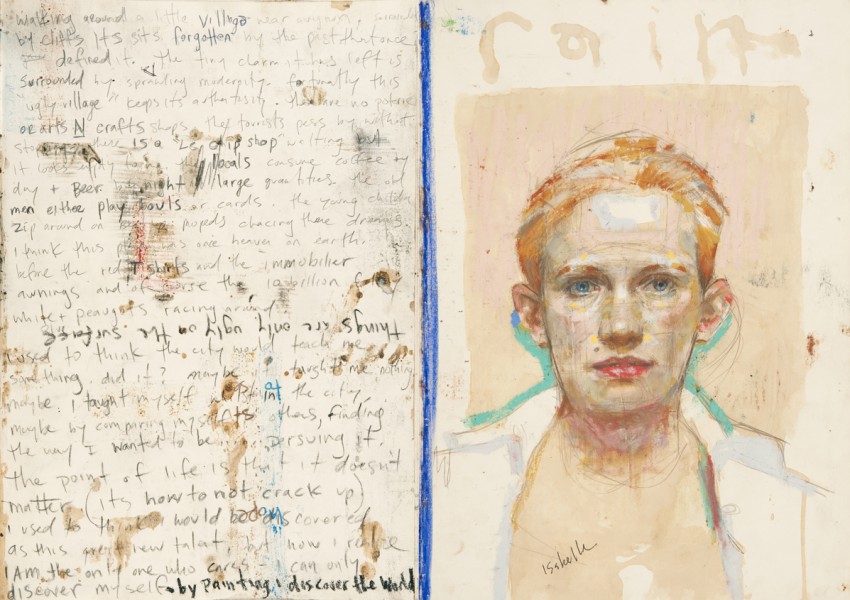 Walking around a little village near avignon. surrounded
by cliffs Its sits forgotten by the past that once
defined it. the tiny charm it has left is
surrounded by sprawling modernity. fortunatly this
"ugly village" keeps its authenticity. there are no poterie
or arts N crafts shops. the tourists pass by without
there is a "Le clip shop" waiting but
it looks empty locals consume coffee by
day + Beer by night large quantities. the old
men either play bowls or cards. the young children
zip around on mopeds chacing there dreams.
I think this was once heaven on earth.
before the T shirts and the immobilier
awnings and of course the
white peaugots racing around
things are only ugly on the surface
I used to think the city would teach me
something did it? maybe taught me nothing
maybe I taught myself in the city,
maybe by comparing myself to others, finding
the way I wanted to be persuing it.
the point of life is that it doesn't
matter (its how to not crack up)
I used to think I would be discovered
as this great new talent, but now I realize
I AM the only one who cares I can only
discover myself by painting I discover the world
rain
isabelle